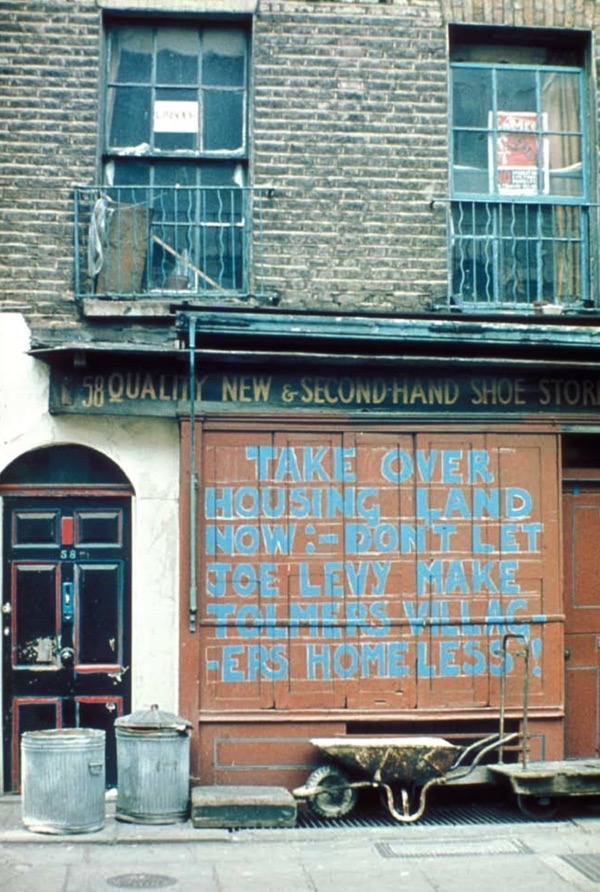 58 QUALITY NEW & SECOND-HAND SHOE STORE
TAKE OVER
HOUSING LAND
NOW :- DON'T LET
JOE LEVY MAKE
TOLMERS VILLAG-
-ERS HOMELESS !
58